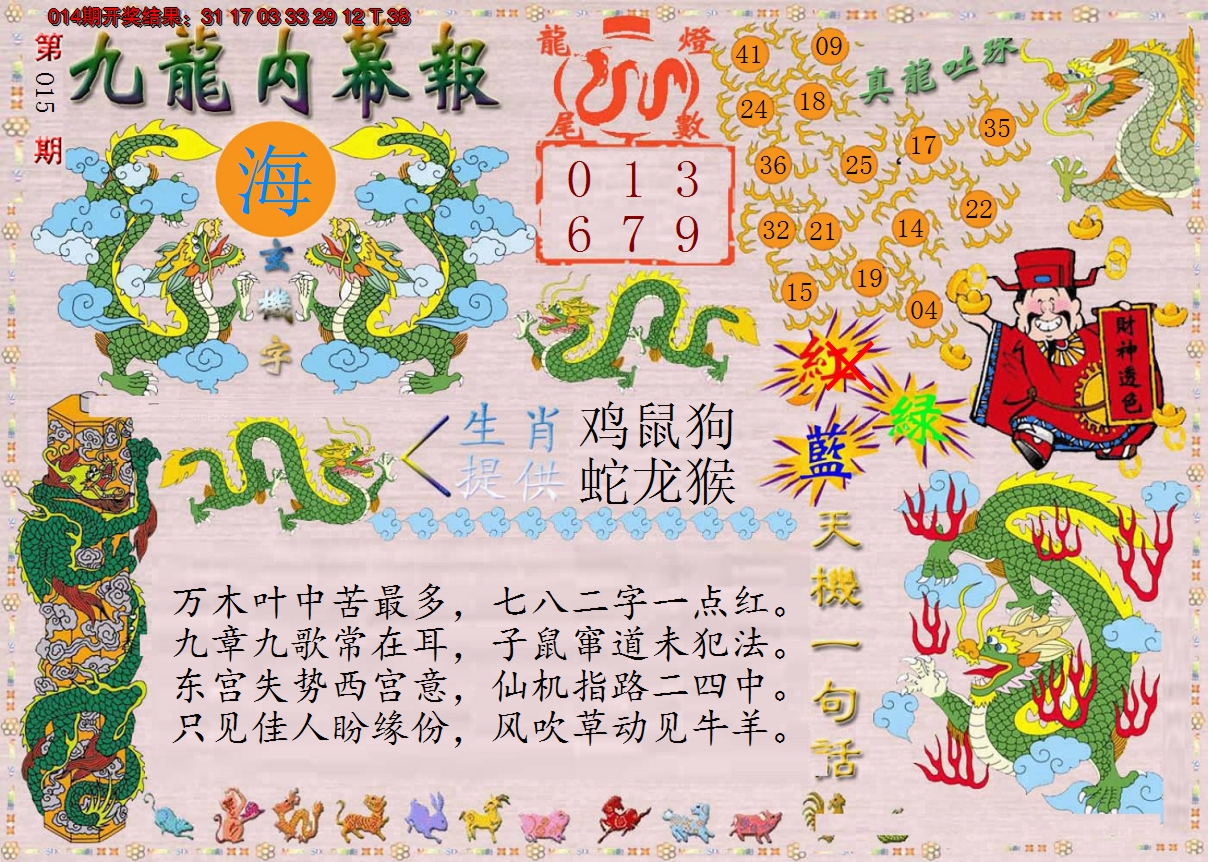 014期开奖结果：31 17 03 33 29 12 T 38
第015期
九龍内幕報
海
玄機字
龍燈
尾數
0 1 3
6 7 9
真龍吐珠
41 09
24 18
36 25 17 35
32 21 14 22
15 19 04
財神透色
紅
綠
藍
生肖 鸡鼠狗
提供 蛇龙猴
天機一句话
万木叶中苦最多，七八二字一点红。
九章九歌常在耳，子鼠窜道未犯法。
东宫失势西宫意，仙机指路二四中。
只见佳人盼缘份，风吹草动见牛羊。